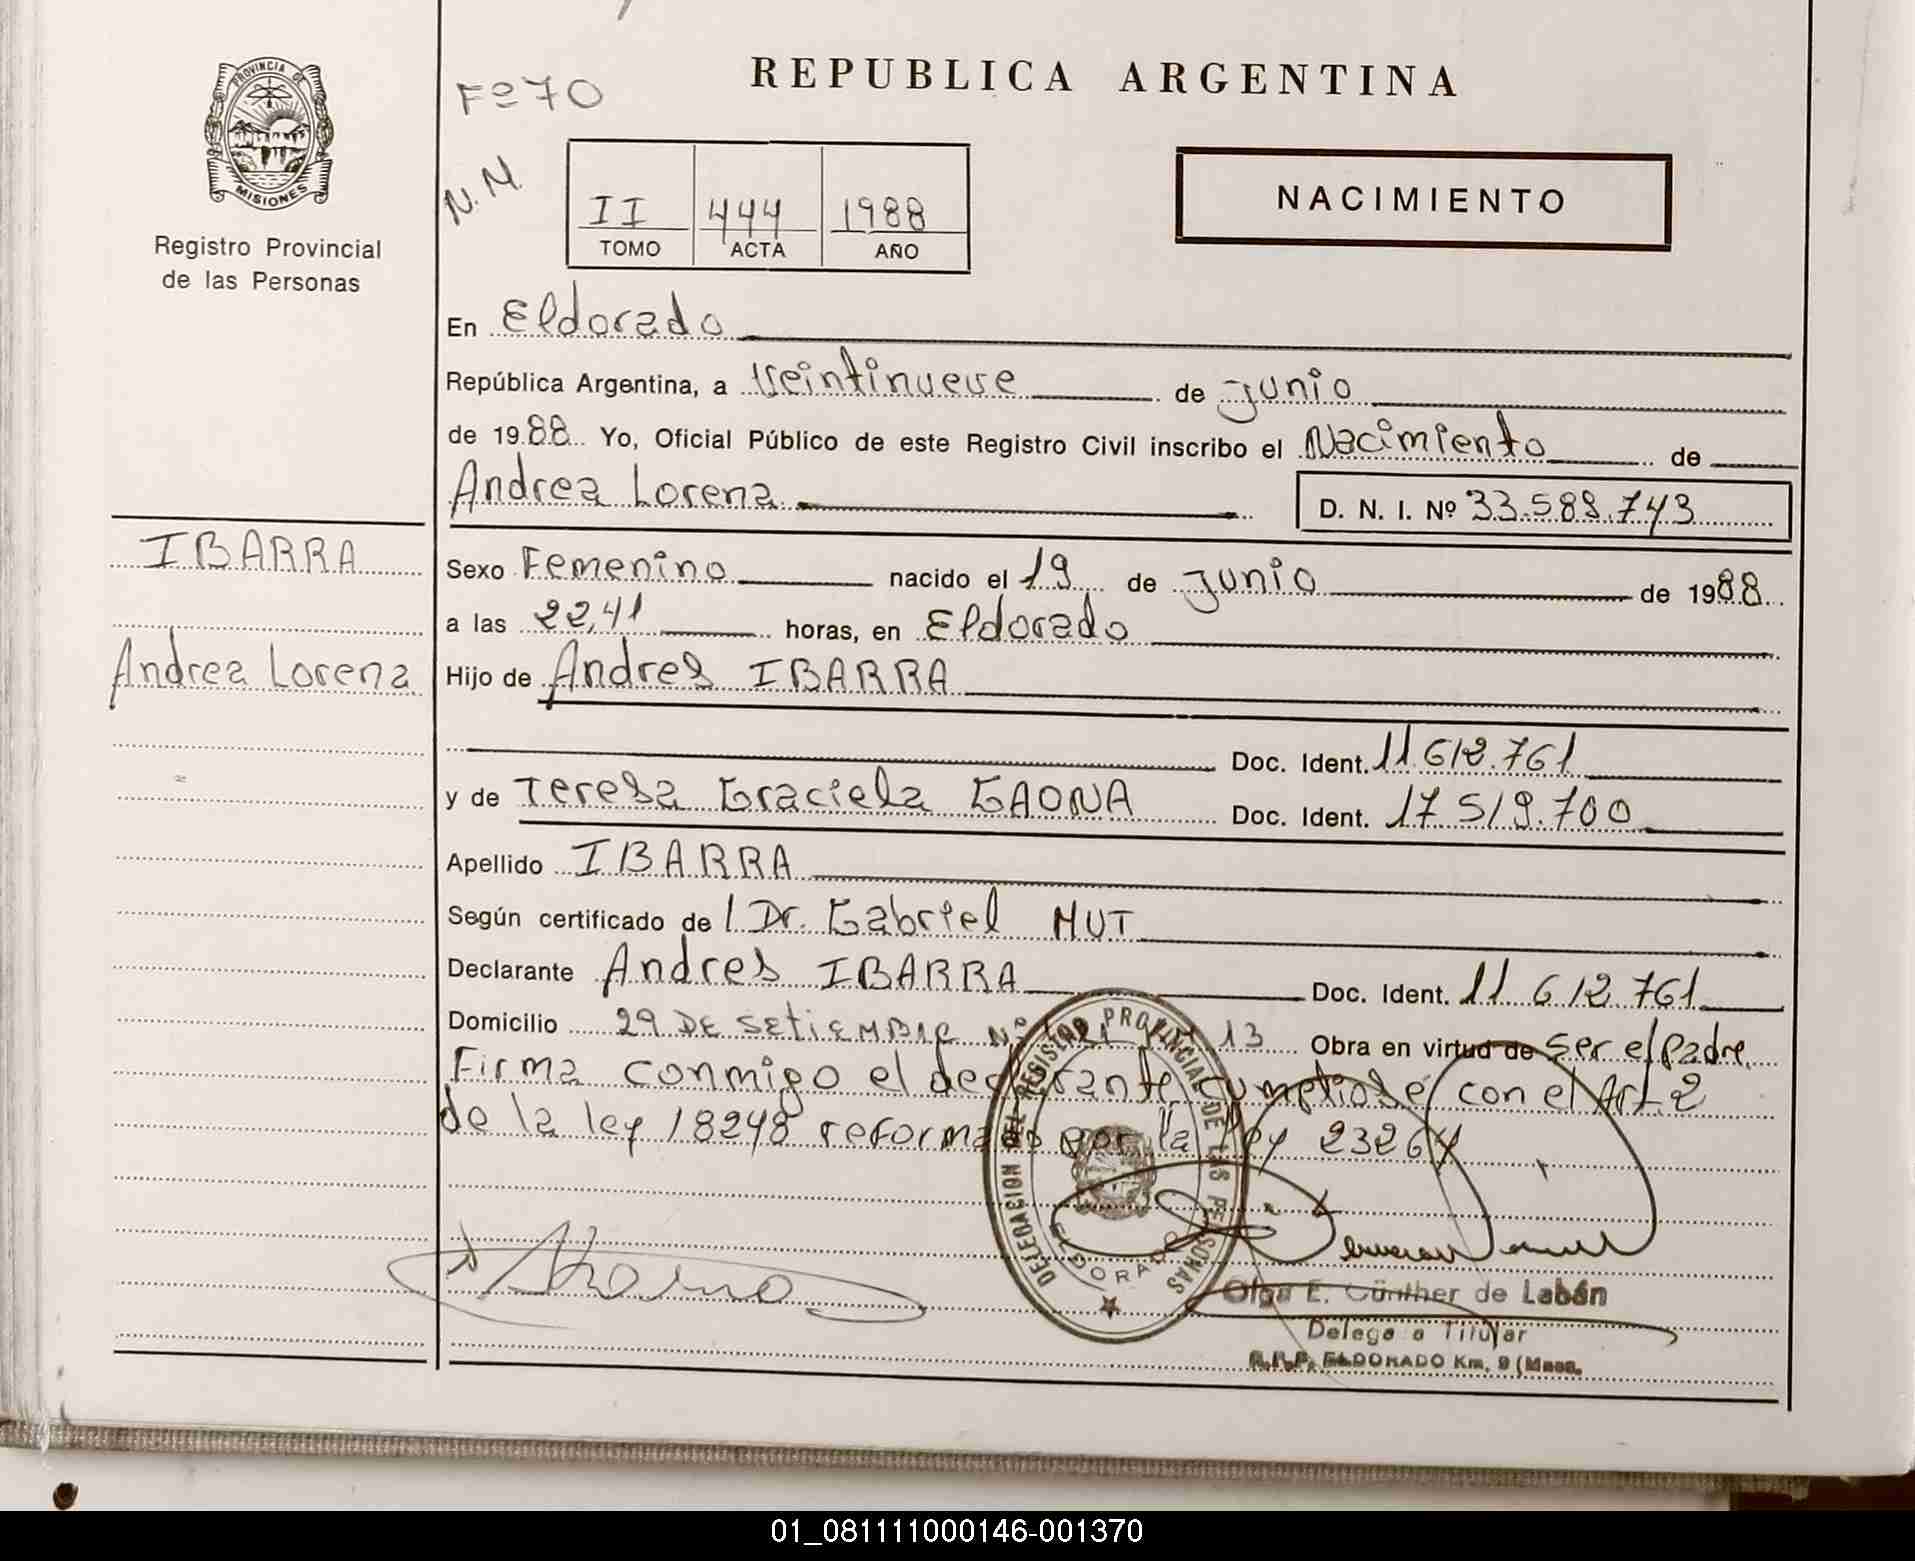 Fº 70
REPUBLICA ARGENTINA
PROVINCIA DE
MISIONES
Registro Provincial
de las Personas
N.N.
II 444 1988
TOMO ACTA AÑO
NACIMIENTO
En Eldorado
República Argentina, a Veintinueve de Junio
de 1988 Yo, Oficial Público de este Registro Civil inscribo el Nacimiento de
Andrea Lorena D. N. I. Nº 33.589.743
IBARRA
Andrea Lorena
Sexo Femenino nacido el 19 de Junio de 1988
a las 22,41 horas, en Eldorado
Hijo de Andres IBARRA
Doc. Ident. 11.612.761
y de Teresa Graciela GAONA Doc. Ident. 17.519.700
Apellido IBARRA
Según certificado de / Dr. Gabriel HUT
Declarante Andres IBARRA Doc. Ident. 11.612.761
Domicilio 29 DE SETIEMBRE Nº 13 Obra en virtud de Ser el padre
Firma conmigo el declarante con el Art. 2
de la ley 18248 reformada por la ley 23264
DELEGACION DEL REGISTRO PROVINCIAL DE LAS PERSONAS
ELDORADO
Olga E. Günther de Labán
Delegada Titular
R.P.P. ELDORADO Km. 9 (Mnes.
01_081111000146-001370